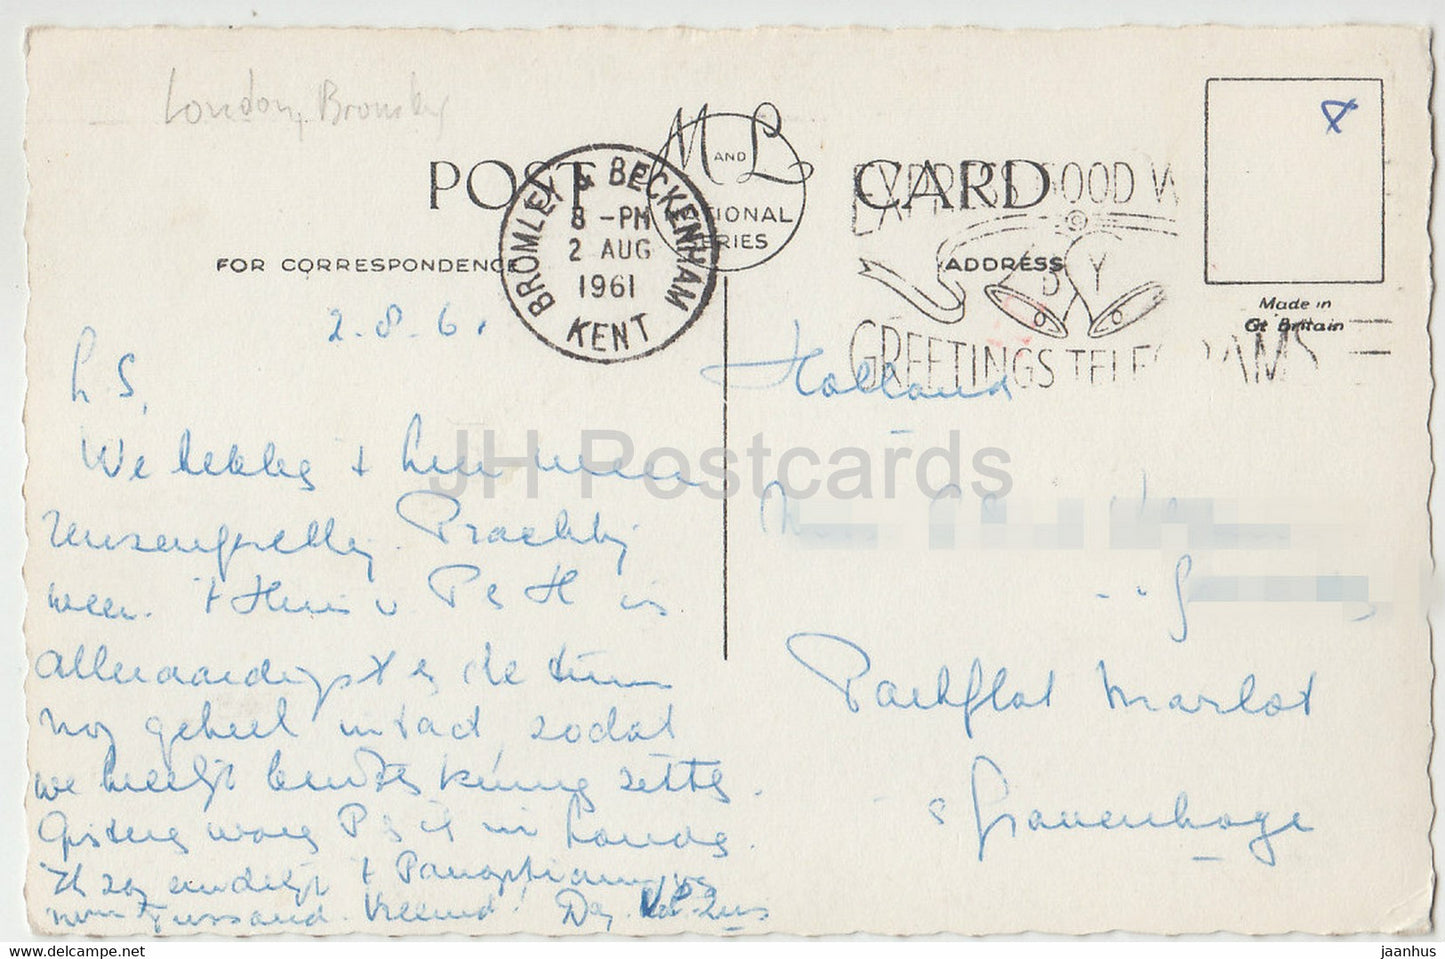 London, Bromley
POST CARD
M AND L
NATIONAL
SERIES
FOR CORRESPONDENCE
ADDRESS
BROMLEY & BECKENHAM
8 - PM
2 AUG
1961
KENT
EXPRESS GOOD W
BY
GREETINGS TELEGRAMS
Made in
Gt Britain
2.8.61
L S,
We hebben 't hier weer
reuzengezellig. Prachtig
weer. 't Huis v. P en H is
alleraardigst en de tuin
nog geheel intact, zodat
we heerlijk buiten kunnen zitten.
Gisteren waren P & ik in Londen.
Ik zag eindelijk 't Panopticum van
mme Tussaud. Vreemd! Dag
Holland
Parkflat Marlot
s Gravenhage
JH Postcards
https://jhpostcards.com
jaanhus